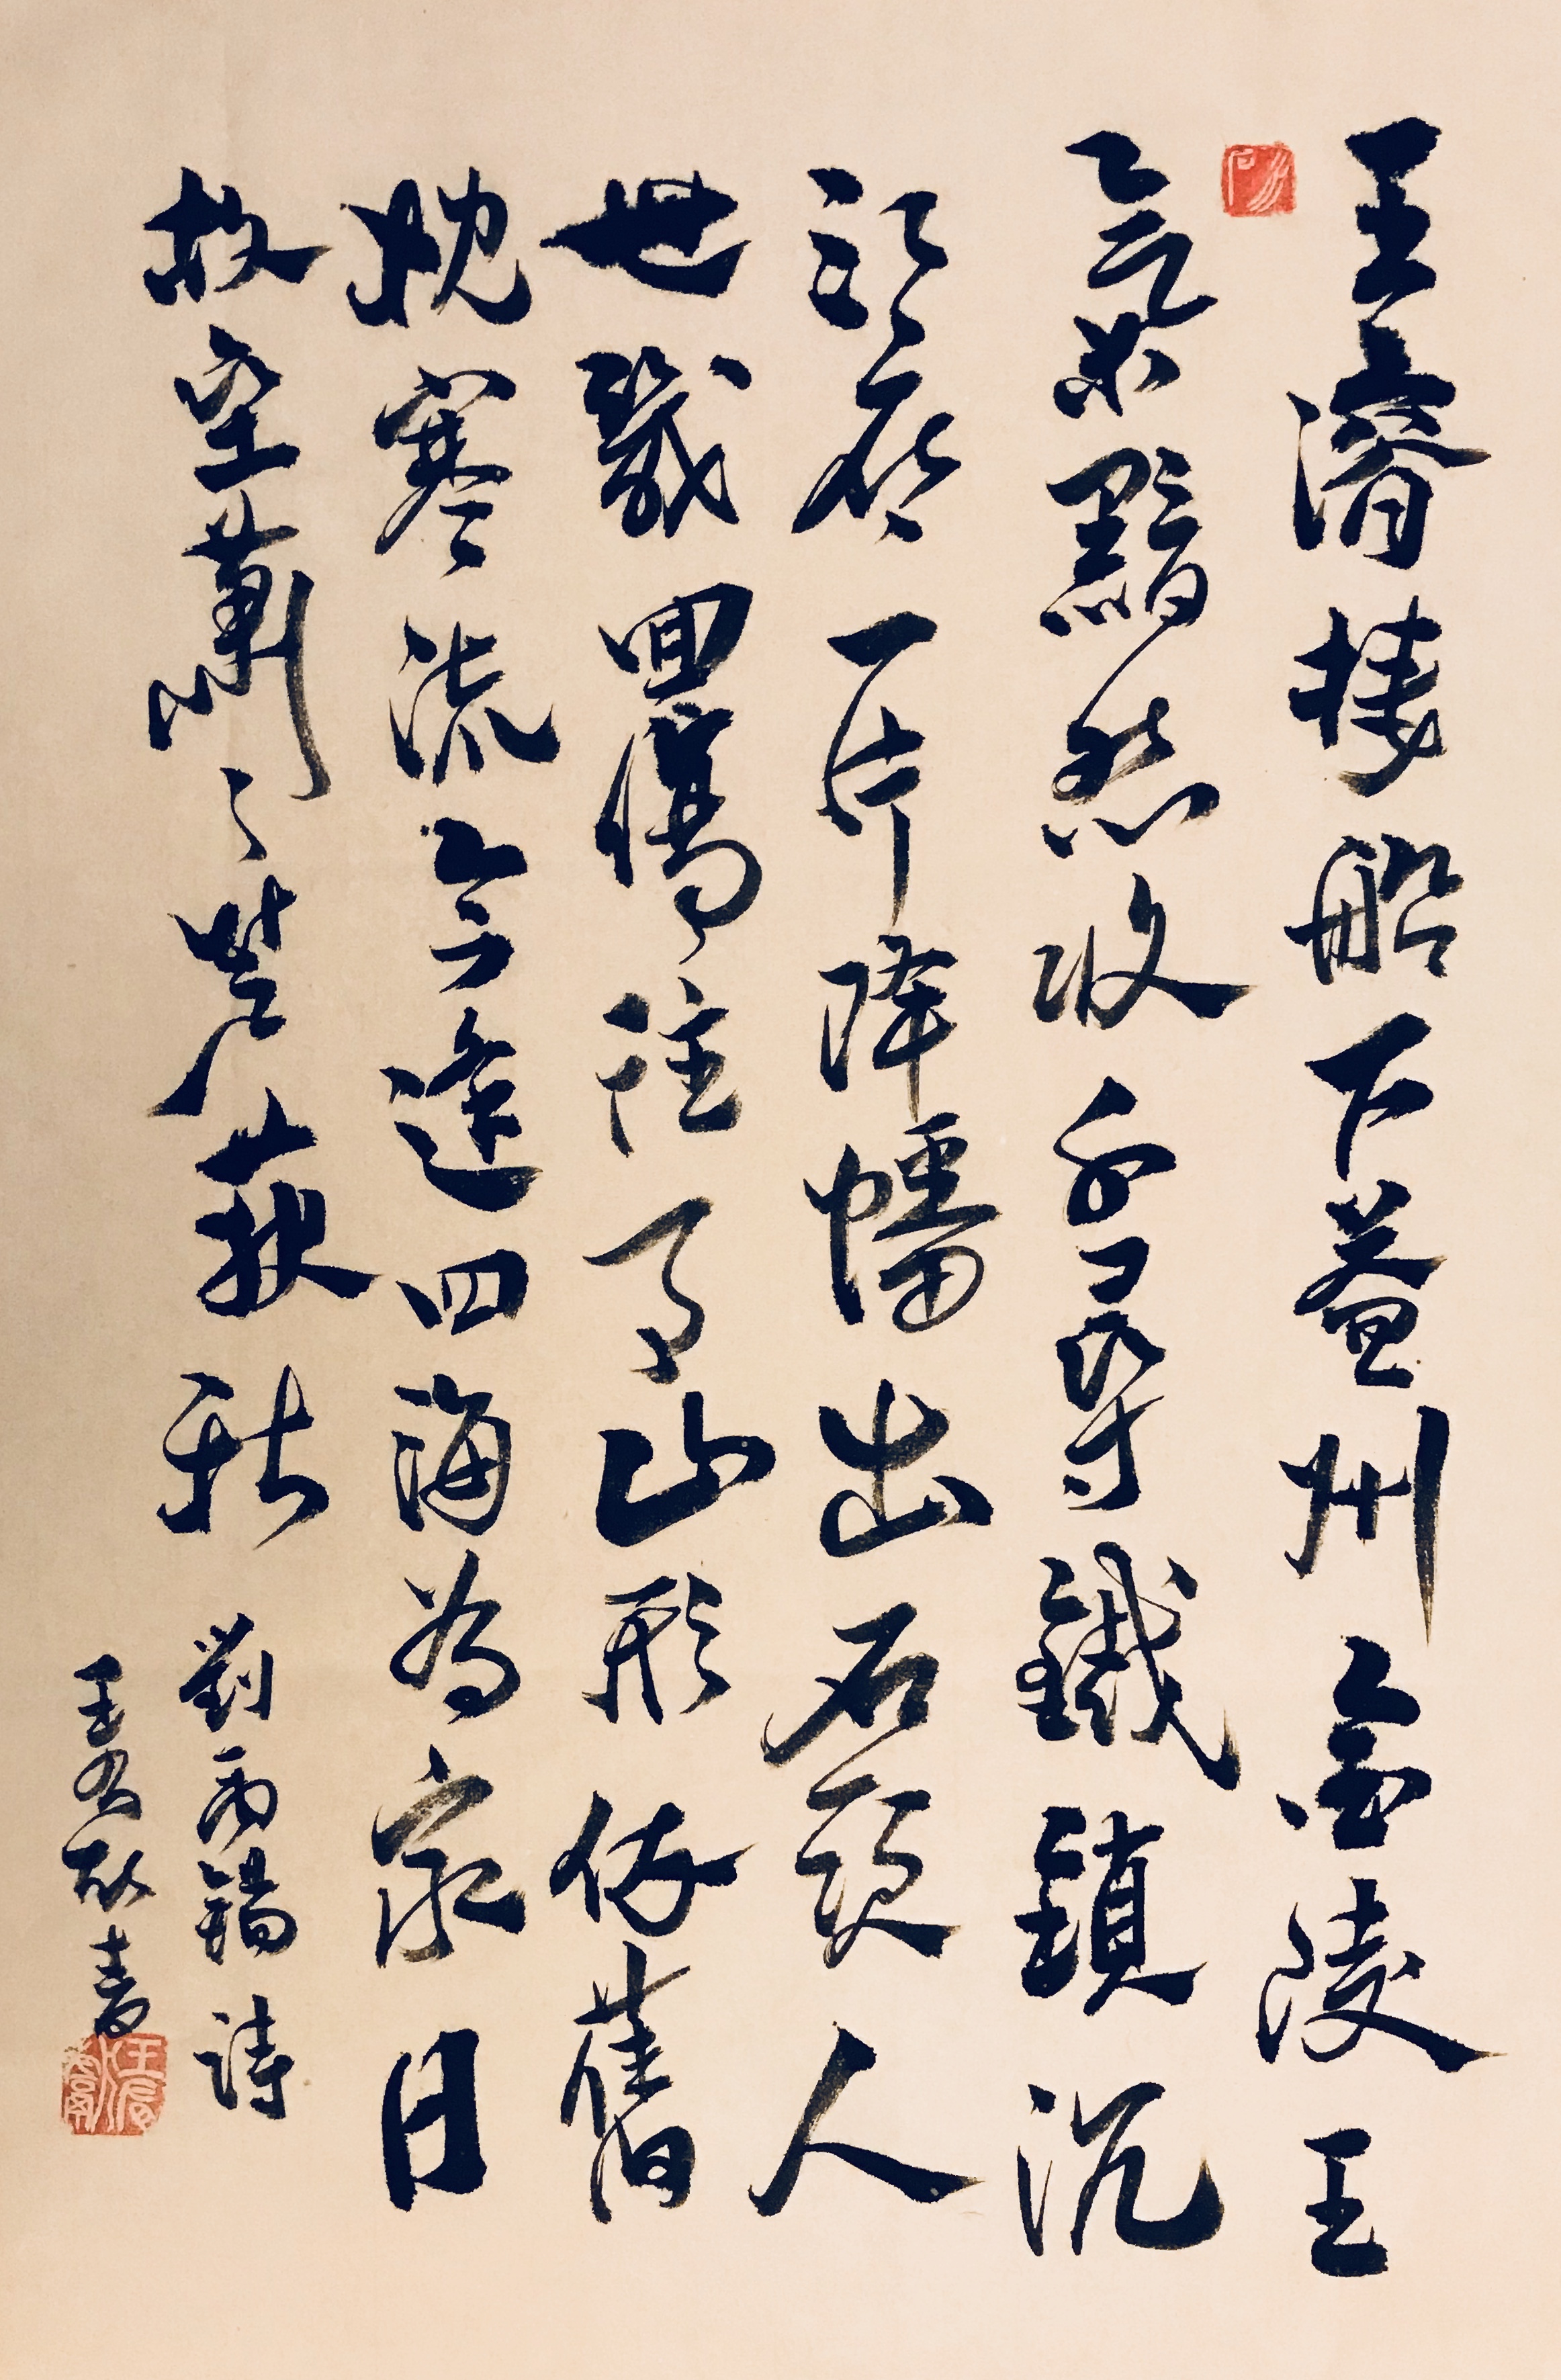 王濬樓船下益州金陵王
氣黯然收千尋鐵鎖沉
江底一片降幡出石頭人
世幾回傷往事山形依舊
枕寒流今逢四海為家日
故壘蕭々蘆荻秋 劉禹錫詩
王 書